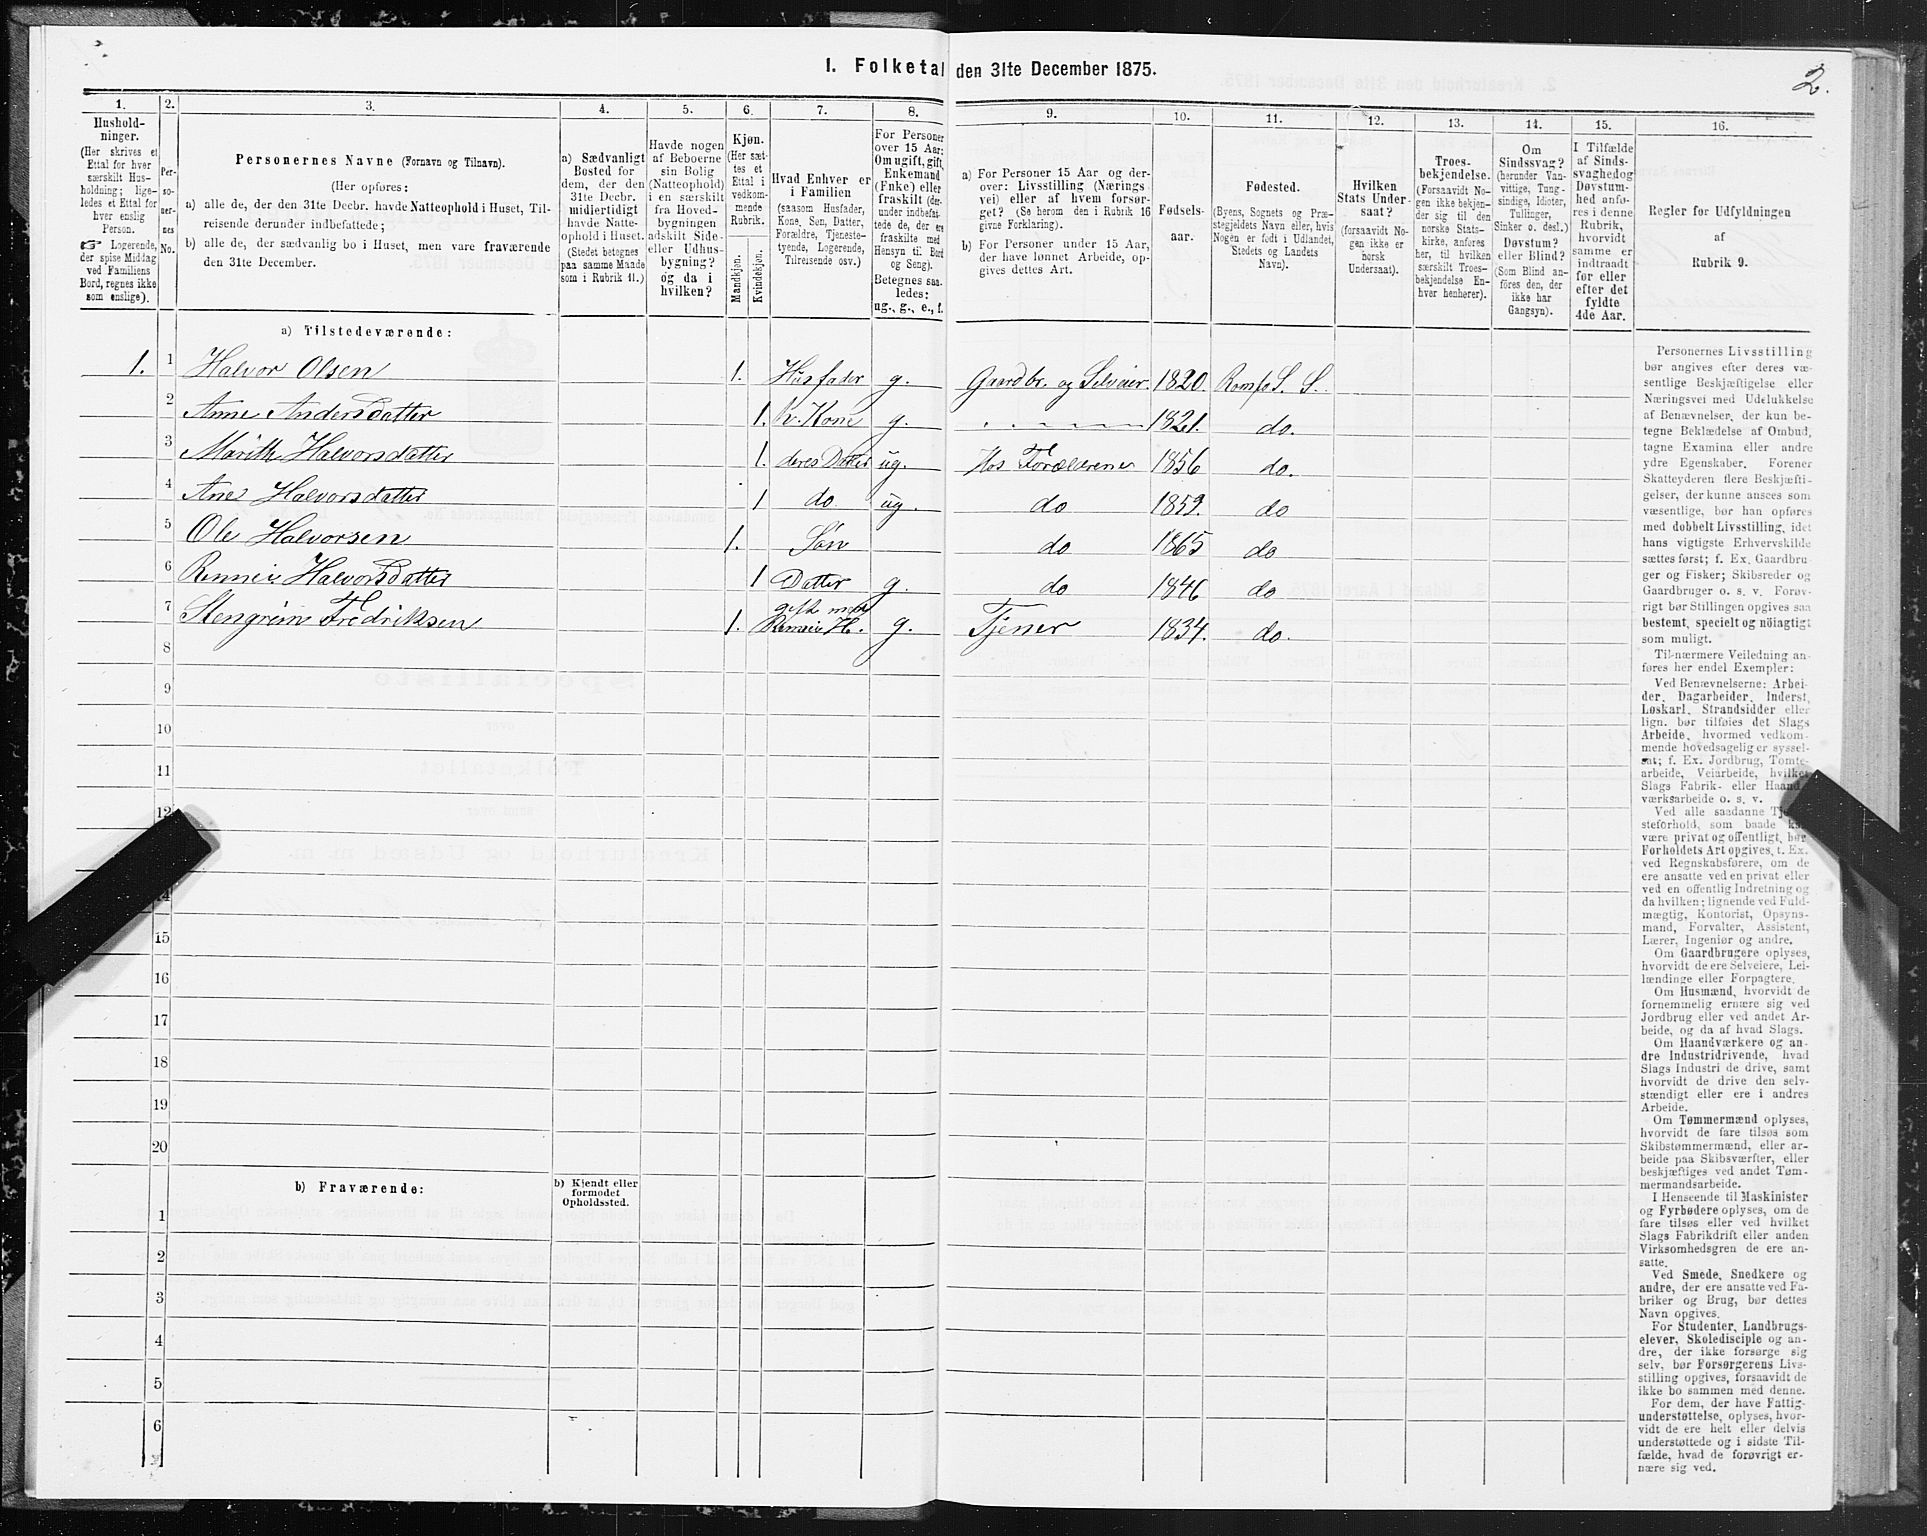 2.
1. Folketal den 31te December 1875.
1. 2. 3. 4. 5. 6. 7. 8. 9. 10. 11. 12. 13. 14. 15. 16.
Hushold-
ninger.
(Her skrives et
Ettal for hver
særskilt Hus-
holdning; lige-
ledes et Ettal for
hver enslig
Person.
☞ Logerende,
der spise Middag
ved Familiens
Bord, regnes ikke
som enslige).
Per-
so-
ner-
nes
No.
Personernes Navne (Fornavn og Tilnavn).
(Her opføres:
a) alle de, der den 31te Decbr. havde Natteophold i Huset, Til-
reisende derunder indbefattede;
b) alle de, der sædvanlig bo i Huset, men vare fraværende
den 31te December.
a) Sædvanligt
Bosted for
dem, der den
31te Decbr.
midlertidigt
havde Natte-
ophold i Huset.
(Stedet betegnes
paa samme Maade
som i Rubrik 11.)
Havde nogen
af Beboerne
sin Bolig
(Natteophold)
i en særskilt
fra Hoved-
bygningen
adskilt Side-
eller Udhus-
bygning?
og da i
hvilken?
Kjøn.
(Her sæt-
tes et
Ettal i
vedkom-
mende
Rubrik.
Mandkjøn.
Kvindekjøn.
Hvad Enhver er
i Familien
(saasom Husfader,
Kone, Søn, Datter,
Forældre, Tjeneste-
tyende, Logerende,
Tilreisende osv.)
For Personer
over 15 Aar:
Om ugift, gift,
Enkemand
(Enke) eller
fraskilt (der-
under indbefat-
tede de, der ere
fraskilte med
Hensyn til Bord
og Seng).
Betegnes saa-
ledes:
ug., g., e., f.
a) For Personer 15 Aar og der-
over: Livsstilling (Nærings-
vei) eller af hvem forsør-
get? (Se herom den i Rubrik 16
givne Forklaring).
b) For Personer under 15 Aar,
der have lønnet Arbeide, op-
gives dettes Art.
Fødsels-
aar.
Fødested.
(Byens, Sognets og Præ-
stegjeldets Navn eller, hvis
Nogen er født i Udlandet,
Stedets og Landets
Navn).
Hvilken
Stats Under-
saat?
(forsaavidt No-
gen ikke er
norsk
Undersaat).
Troes-
bekjendelse.
(Forsaavidt No-
gen ikke bekjen-
der sig til den
norske Stats-
kirke, anføres
her, til hvilken
særskilt Troes-
bekjendelse En-
hver henhører).
Om
Sindssvag?
(herunder Van-
vittige, Tung-
sindige, Idioter,
Tullinger,
Sinker o. desl.)
Døvstum?
eller Blind?
(Som Blind an-
føres den, der
ikke har
Gangsyn).
I Tilfælde
af Sinds-
svaghed og
Døvstum-
hed anfø-
res i denne
Rubrik,
hvorvidt
samme er
indtraadt
før eller
efter det
fyldte
4de Aar.
Regler for Udfyldningen
af
Rubrik 9.
a) Tilstedeværende:
1. 1 Halvor Olsen 1. Husfader g. Gaardbr. og Selveier. 1820. Romfo S. S.
2 Anne Andersdatter 1. h. Kone g. 1821. do.
3 Marith Halvorsdatter 1. deres Datter ug. Hos Forældrene 1856 do.
4 Ane Halvorsdatter 1 do. ug. do 1859. do
5 Ole Halvorsen 1. Søn do 1865 do
6 Rennei Halvorsdatter 1 Datter g. do 1846 do
7 Stengrim Fredriksen 1. gift med Rennei H. g. Tjener 1834. do.
8
9
10
11
12
14
15
16
17
18
19
20
b) Fraværende:
b) Kjendt eller
formodet
Opholdssted.
1
2
3
4
5
6
Personernes Livsstilling
bør angives efter deres væ-
sentlige Beskjæftigelse eller
Næringsvei med Udelukkelse
af Benævnelser, der kun be-
tegne Beklædelse af Ombud,
tagne Examina eller andre
ydre Egenskaber. Forener
Skatteyderen flere Beskjæfti-
gelser, der kunne ansees som
væsentlige, bør han opføres
med dobbelt Livsstilling, idet
hans vigtigste Erhvervskilde
sættes først; f. Ex. Gaardbru-
ger og Fisker; Skibsreder og
Gaardbruger o. s. v. Forøv-
rigt bør Stillingen opgives saa
bestemt, specielt og nöiagtigt
som muligt.
Til nærmere Veiledning an-
føres her endel Exempler:
Ved Benævnelserne: Arbei-
der, Dagarbeider, Inderst,
Løskarl, Strandsidder eller
lign. bør tilføies det Slags
Arbeide, hvormed vedkom-
mende hovedsagelig er syssel-
sat; f. Ex. Jordbrug, Tomte-
arbeide, Veiarbeide, hvilket
Slags Fabrik- eller Haand-
værksarbeide o. s. v.
Ved alle saadanne Tje-
steforhold, som baade kan
være privat og offentligt, bør
Forholdets Art opgives, t. Ex.
ved Regnskabsførere, om de
ere ansatte ved en privat eller
ved en offentlig Indretning og
da hvilken; lignende ved Fuld-
mægtig, Kontorist, Opsyns-
mand, Forvalter, Assistent,
Lærer, Ingeniør og andre.
Om Gaardbrugere oplyses,
hvorvidt de ere Selveiere, Lei-
lændinge eller Forpagtere.
Om Husmænd, hvorvidt de
fornemmelig ernære sig ved
Jordbrug eller ved andet Ar-
beide, og da af hvad Slags.
Om Haandværkere og an-
dre Industridrivende, hvad
Slags Industri de drive, samt
hvorvidt de drive den selv-
stændigt eller ere i andres
Arbeide.
Om Tømmermænd oplyses,
hvorvidt de fare tilsøs som
Skibstømmermænd, eller ar-
beide paa Skibsværfter, eller
beskjæftiges ved andet Tøm-
mermandsarbeide.
I Henseende til Maskinister
og Fyrbødere oplyses, om de
fare tilsøs eller ved hvilket
Slags Fabrikdrift eller anden
Virksomhedsgren de ere an-
satte.
Ved Smede, Snedkere og
andre, der ere ansatte ved Fa-
briker og Brug, bør dettes
Navn opgives.
For Studenter, Landbrugs-
elever, Skoledisciple og an-
dre, der ikke forsørge sig
selv, bør Forsørgerens Livs-
stilling opgives, forsaavidt de
ikke bo sammen med denne.
For dem, der have Fattig-
understøttelse, oplyses, hvor-
vidt de ere helt eller delvis
understøttede og i sidste Til-
fælde, hvad de forøvrigt er-
nære sig ved.